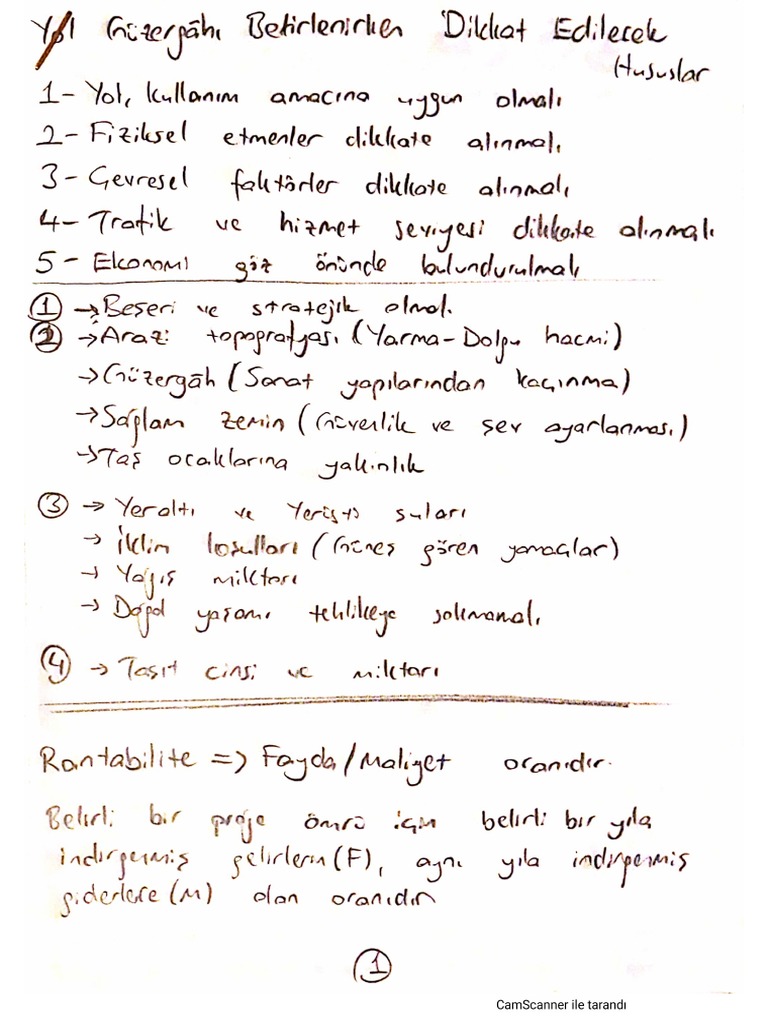 Yol Güzergâhı Belirlenirken Dikkat Edilecek
Hususlar
1- Yol, kullanım amacına uygun olmalı
2- Fiziksel etmenler dikkate alınmalı
3- Çevresel faktörler dikkate alınmalı
4- Trafik ve hizmet seviyesi dikkate alınmalı
5- Ekonomi göz önünde bulundurulmalı
① → Beşeri ve stratejik olmalı
② → Arazi topografyası (Yarma-Dolgu hacmi)
→ Güzergâh (Sanat yapılarından kaçınma)
→ Sağlam zemin (Güvenlik ve şev ayarlanması)
→ Taş ocaklarına yakınlık
③ → Yeraltı ve Yerüstü suları
→ İklim koşulları (Güneş gören yamaçlar)
→ Yağış miktarı
→ Doğal yaşamı tehlikeye sokmamalı
④ → Taşıt cinsi ve miktarı
Rantabilite => Fayda/Maliyet oranıdır.
Belirli bir proje ömrü için belirli bir yıla
indirgenmiş gelirlerin (F), aynı yıla indirgenmiş
giderlere (M) olan oranıdır
①
CamScanner ile tarandı